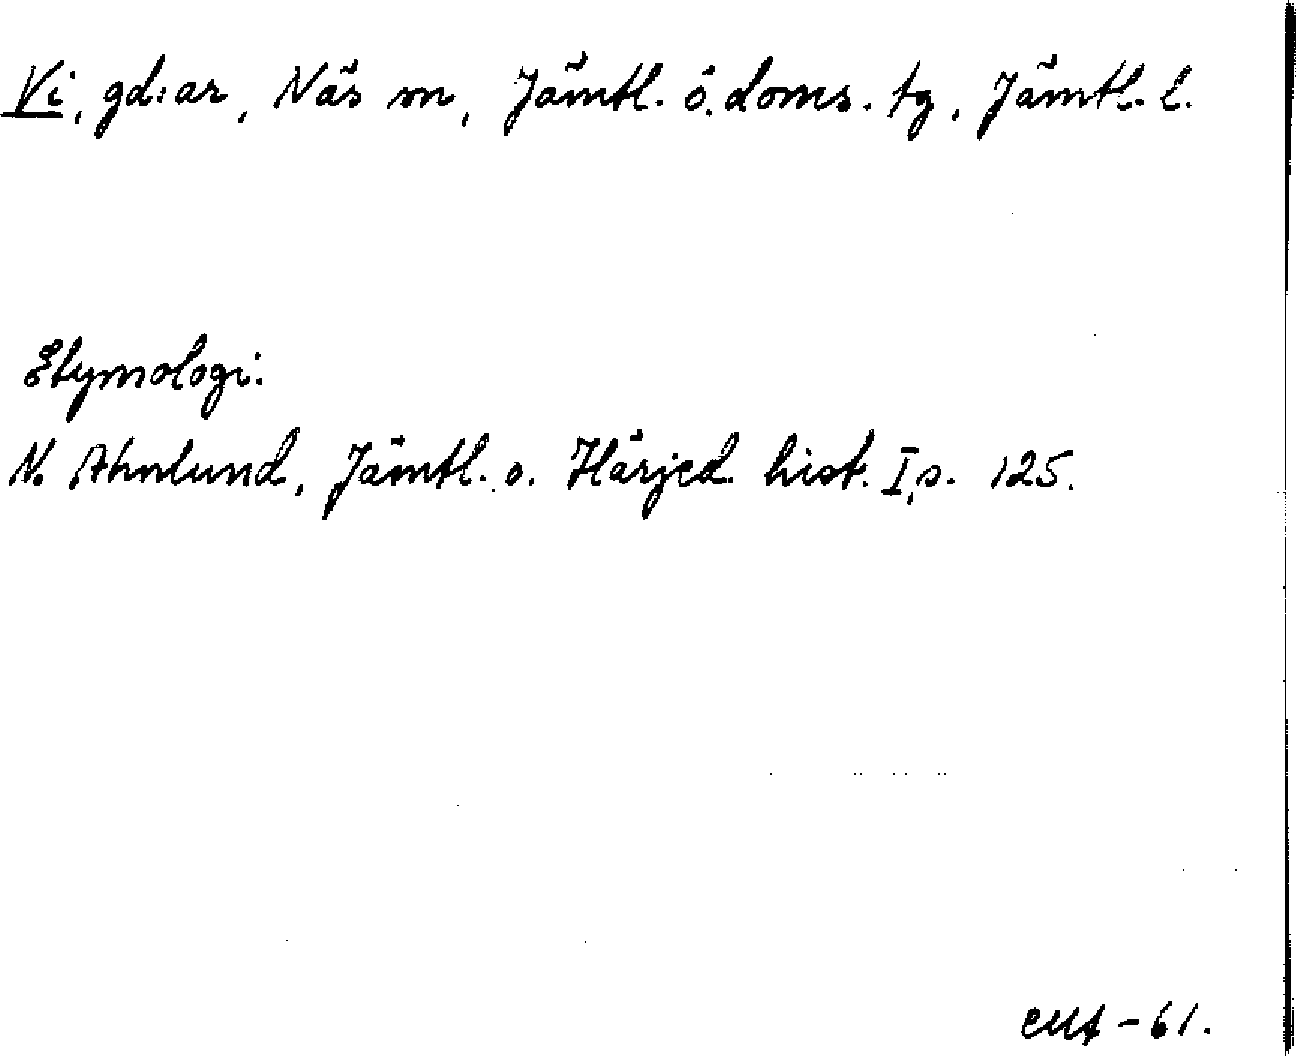 Vi, gd:ar, Näs sn, Jämtl. ö. doms. tg, Jämtl. l.
Etymologi:
N. Ahnlund, Jämtl. o. Härjed. hist. I, s. 125.
-61.